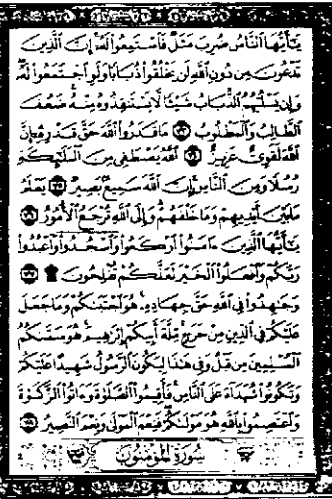 يَـٰٓأَيُّهَا ٱلنَّاسُ ضُرِبَ مَثَلٌ فَٱسْتَمِعُوا۟ لَهُۥٓ إِنَّ ٱلَّذِينَ
تَدْعُونَ مِن دُونِ ٱللَّهِ لَن يَخْلُقُوا۟ ذُبَابًا وَلَوِ ٱجْتَمَعُوا۟ لَهُۥ
وَإِن يَسْلُبْهُمُ ٱلذُّبَابُ شَيْـًٔا لَّا يَسْتَنقِذُوهُ مِنْهُ ضَعُفَ
ٱلطَّالِبُ وَٱلْمَطْلُوبُ ٧٣ مَا قَدَرُوا۟ ٱللَّهَ حَقَّ قَدْرِهِۦٓ إِنَّ
ٱللَّهَ لَقَوِىٌّ عَزِيزٌ ٧٤ ٱللَّهُ يَصْطَفِى مِنَ ٱلْمَلَـٰٓئِكَةِ
رُسُلًا وَمِنَ ٱلنَّاسِ إِنَّ ٱللَّهَ سَمِيعٌۢ بَصِيرٌ ٧٥ يَعْلَمُ
مَا بَيْنَ أَيْدِيهِمْ وَمَا خَلْفَهُمْ وَإِلَى ٱللَّهِ تُرْجَعُ ٱلْأُمُورُ ٧٦
يَـٰٓأَيُّهَا ٱلَّذِينَ ءَامَنُوا۟ ٱرْكَعُوا۟ وَٱسْجُدُوا۟ وَٱعْبُدُوا۟
رَبَّكُمْ وَٱفْعَلُوا۟ ٱلْخَيْرَ لَعَلَّكُمْ تُفْلِحُونَ ۩ ٧٧
وَجَـٰهِدُوا۟ فِى ٱللَّهِ حَقَّ جِهَادِهِۦ هُوَ ٱجْتَبَىٰكُمْ وَمَا جَعَلَ
عَلَيْكُمْ فِى ٱلدِّينِ مِنْ حَرَجٍ مِّلَّةَ أَبِيكُمْ إِبْرَٰهِيمَ هُوَ سَمَّىٰكُمُ
ٱلْمُسْلِمِينَ مِن قَبْلُ وَفِى هَـٰذَا لِيَكُونَ ٱلرَّسُولُ شَهِيدًا عَلَيْكُمْ
وَتَكُونُوا۟ شُهَدَآءَ عَلَى ٱلنَّاسِ فَأَقِيمُوا۟ ٱلصَّلَوٰةَ وَءَاتُوا۟ ٱلزَّكَوٰةَ
وَٱعْتَصِمُوا۟ بِٱللَّهِ هُوَ مَوْلَىٰكُمْ فَنِعْمَ ٱلْمَوْلَىٰ وَنِعْمَ ٱلنَّصِيرُ ٧٨
سُورَةُ المُؤْمِنُون